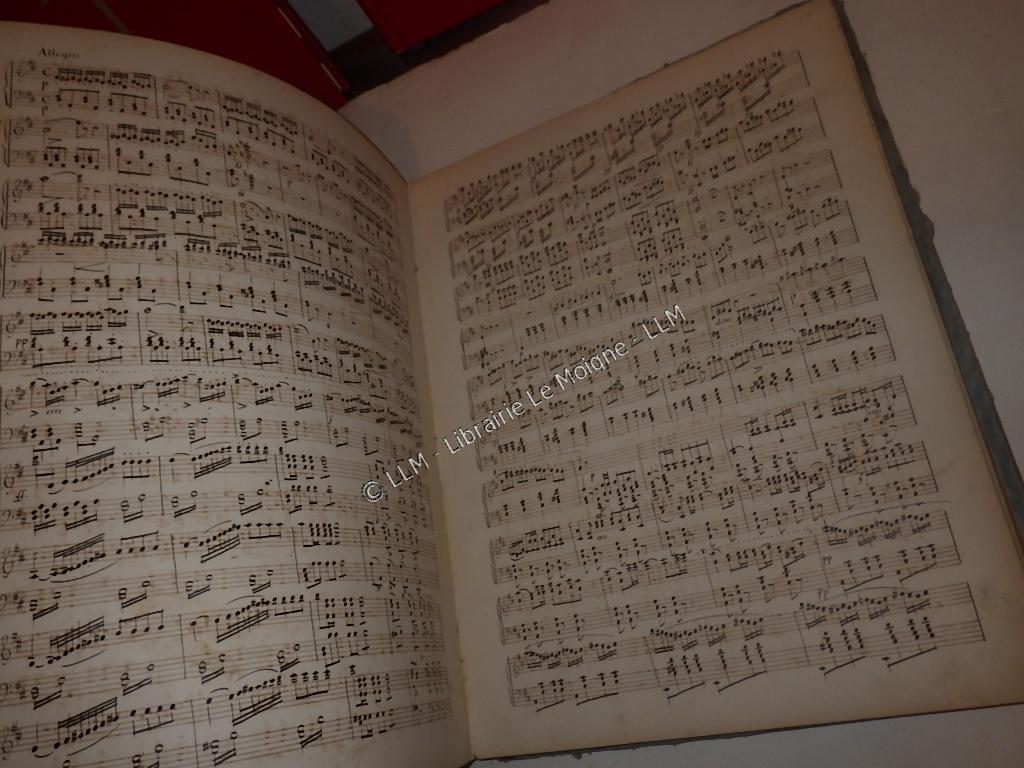 Allegro
pp
cres
ff
© LLM - Librairie Le Moigne - LLM
pp
pp